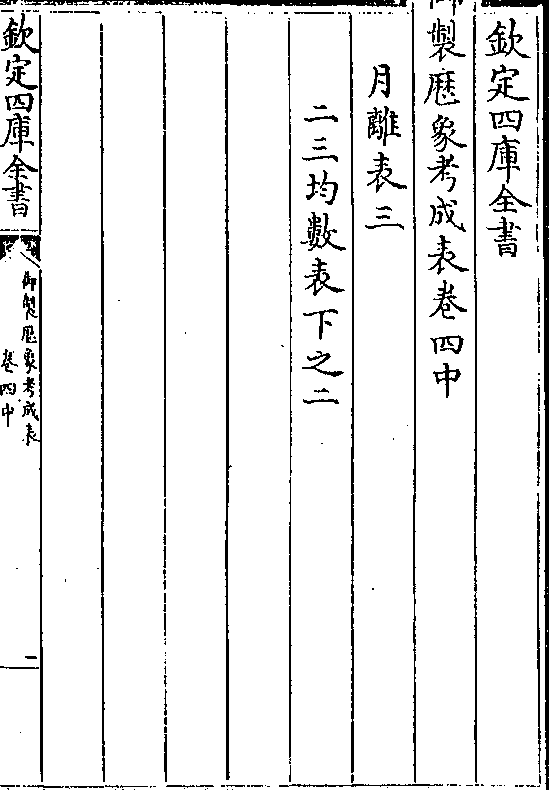 欽定四庫全書
御製厯象考成表卷四中
月離表三
二三均數表下之二
欽定四庫全書
御製厯象考成表
卷四中
一